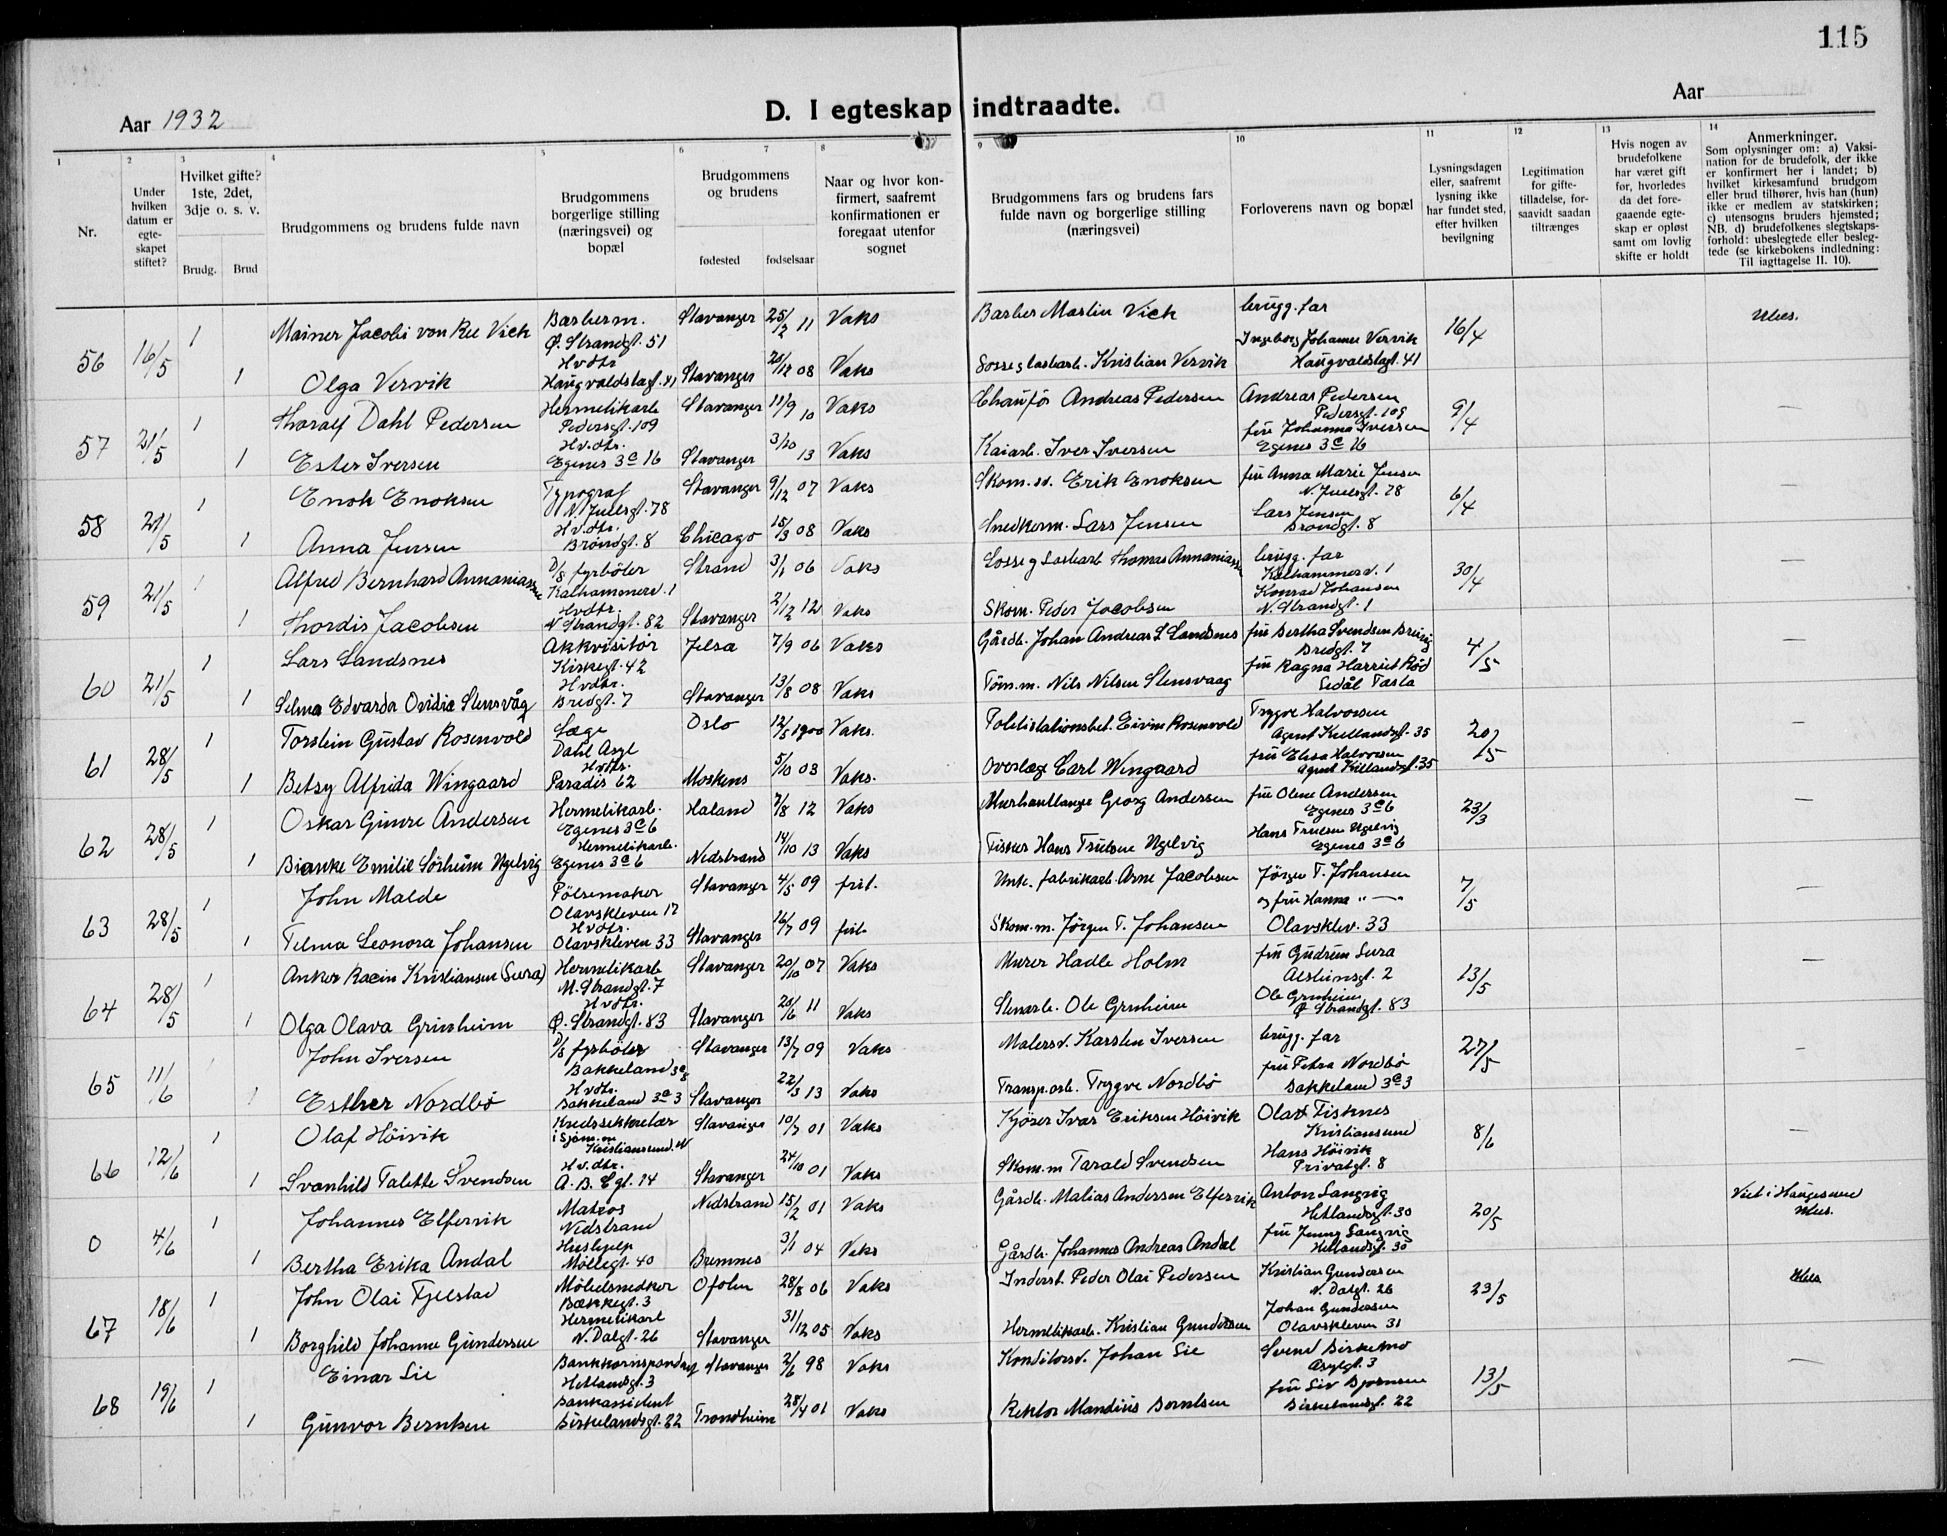 115
Aar 1932
D. I egteskap indtraadte.
Aar
1
2
3
4
5
6
7
8
9
10
11
12
13
14
Nr.
Under hvilken datum er egte-skapet stiftet?
Hvilket gifte? 1ste, 2det, 3dje o. s. v.
Brudg.
Brud
Brudgommens og brudens fulde navn
Brudgommens borgerlige stilling (næringsvei) og bopæl
Brudgommens og brudens
fødested
fødselsaar
Naar og hvor kon-firmert, saafremt konfirmationen er foregaat utenfor sognet
Brudgommens fars og brudens fars fulde navn og borgerlige stilling (næringsvei)
Forloverens navn og bopæl
Lysningsdagen eller, saafremt lysning ikke har fundet sted, efter hvilken bevilgning
Legitimation for gifte-tilladelse, for-saavidt saadan tiltrænges
Hvis nogen av brudefolkene har været gift før, hvorledes da det fore-gaaende egte-skap er opløst samt om lovlig skifte er holdt
Anmerkninger.
Som oplysninger om: a) Vaksi-nation for de brudefolk, der ikke er konfirmert her i landet; b) hvilket kirkesamfund brudgom eller brud tilhører, hvis han (hun) ikke er medlem av statskirken; c) utensogns bruders hjemsted; NB. d) brudefolkenes slegtskaps-forhold: ubeslegtede eller besleg-tede (se kirkebokens indledning: Til iagttagelse II. 10).
56 16/5 1 Mainer Jacobi von Ree Vick Barberm. Ø. Strandgt. 51 Stavanger 25/2 11 Vaks Barber Martin Vick brugg. far 16/4
1 Olga Vervik Hvdtr Haugvaldstagt. 41 Stavanger 20/12 08 Vaks Losse g lastearb. Kristian Vervik Ingeborg Johanne Vervik Haugvaldstagt. 41
57 21/5 1 Thoralf Dahl Pedersen Hermetikarb Pedersgt. 109 Stavanger 11/9 10 Vaks Chaufør Andreas Pedersen Andreas Pedersen Pedersgt. 109 9/4 —
1 Ester Iversen Hvdtr. Egenes 3c 16 Stavanger 3/10 13 Vaks Kaiarb. Iver Iversen fru Johanna Iversen Egenes 3c 16
58 21/5 1 Enok Enoksen Typograf N. Juelsgt. 78 Stavanger 9/12 07 Vaks Skom. sv. Erik Enoksen fru Anna Marie Jensen N. Juelsgt. 78 6/4 —
1 Anna Jensen Hvdtr. Brøndgt. 8 Chicago 15/3 08 Vaks Snedkerm. Lars Jensen Lars Jensen Brøndgt. 8
59 21/5 1 Alfred Bernhard Annaniassen D/S fyrbøter Kalhammerv. 1 Strand 3/1 06 Vaks Losse g Lastearb Thomas Annaniassen brugg. far Kalhammerv. 1 30/4 —
1 Thordis Jacobsen Hvdtr. N Strandgt. 82 Stavanger 2/12 12 Vaks Skom. Peder Jacobsen Konrad Johansen N. Strandgt. 1
60 21/5 1 Lars Landsnes Akkvisitør Kirkegt. 42 Jelsa 7/9 06 Vaks Gårdb. Johan Andreas L Landsnes fru Bertha Svendsen Breivig Bredgt. 7 4/5 —
1 Selma Edvarda Ovidia Stensvåg Hvdtr. Bredgt. 7 Stavanger 13/8 08 Vaks Tøm.m. Nils Nilsen Stensvaag fru Ragna Harriet Rød Ledål Tasta
61 28/5 1 Torstein Gustav Rosenvold Læge Dahl Asyl Oslo 12/5 1900 Vaks. Politistationsbet. Eivin Rosenvold Trygve Halvorsen Agent Kiellandsgt. 35 20/5 —
1 Betsy Alfrida Wingaard Hvdtr. Paradis 62 Moskenes 5/10 03 Vaks. Overlæge Carl Wingaard fru Elisa Halvorsen Agent Kiellandsgt. 35
62 28/5 1 Oskar Gunre Andersen Hermetikarb. Egenes 3c 6 Haland 7/8 12 Vaks Murhantlanger Georg Andersen fru Olene Andersen Egenes 3c 6 23/3 —
1 Bianke Emilie Sørheim Ugelvig Hermetikarb. Egenes 3c 6 Nedstrand 14/10 13 Vaks Fisker Hans Trulsen Ugelvig Hans Trulsen Ugelvig Egenes 3c 6
63 28/5 1 John Malde Pølsemaker Olavskleven 17 Stavanger 4/5 09 frit. fabrikarb. Arne Jacobsen Jørgen T. Johansen og fru Hanna " — 7/5 —
1 Telma Leonora Johansen Hvdtr. Olavskleven 33 Stavanger 16/7 09 frit. Skom.m. Jørgen T. Johansen Olavsklev. 33
64 28/5 1 Anker Racin Kristiansen (Sura) Hermetikarb M. Strandgt. 7 Stavanger 20/10 07 Vaks Murer Hadle Holm fru Gudrun Sura 2 13/5 —
1 Olga Olava Grinheim Hvdtr. Ø. Strandgt. 83 Stavanger 20/6 11 Vaks Stenarb. Ole Grinheim Ole Grinheim Ø Strandgt. 83
65 11/6 1 John Iversen D/S fyrbøter Bakkeland 3c 8 Stavanger 13/7 09 Vaks Malersv. Karsten Iversen brugg. far 27/5 —
1 Esther Nordbø Hvdtr. Bakkeland 3c 3 Stavanger 22/3 13 Vaks Transp.arb. Trygve Nordbø fru Petra Nordbø Bakkeland 3c 3
66 12/6 1 Olaf Höivik Kredssekretær i Sjøm.m Kristiansund N Stavanger 10/7 01 Vaks Kjører Ivar Eriksen Höivik Olaf Fisknes Kristiansund 8/6 —
1 Svanhild Talette Svendsen Hv.dtr. A. B. Egt. 14 Stavanger 24/10 01 Vaks Skom.m Tarald Svendsen Hans Höivik Privatgt. 8
0 4/6 1 Johannes Elfervik Matros Nedstrand Nedstrand 15/2 01 Vaks Gårdb. Matias Andersen Elfervik Anton Langvig Hetlandsgt. 30 20/5 Viet i Haugesund
1 Bertha Erika Andal Hushjelp Møllegt. 40 Bremnes 3/1 04 Vaks Gårdb. Johannes Andreas Andal fru Jenny Langvig Hetlandsgt. 30
67 18/6 1 John Olai Fjelstad Møbelsnedker Bækkegt. 3 Ofoten 28/8 06 Vaks Inderst. Peder Olai Pedersen Kristian Gundersen N. Dalgt. 26 23/5
1 Borghild Johanne Gundersen Hermetikarb N. Dalgt. 26 Stavanger 31/12 05 Vaks Hermetikarb. Kristian Gundersen Johan Gundersen Olavskleven 31
68 19/6 1 Einar Lie Bankkorrespondent Hetlandsgt. 3 Stavanger 2/6 98 Vaks Konditorsv. Johan Lie Svend Birkemo Asylgt. 3 13/5 —
1 Gunvor Berntsen Bankassistent Birkelandsgt. 22 Trondheim 28/4 01 Vaks Rektor Mandius Berntsen fru Siv Bjørnsen Birkelandsgt. 22